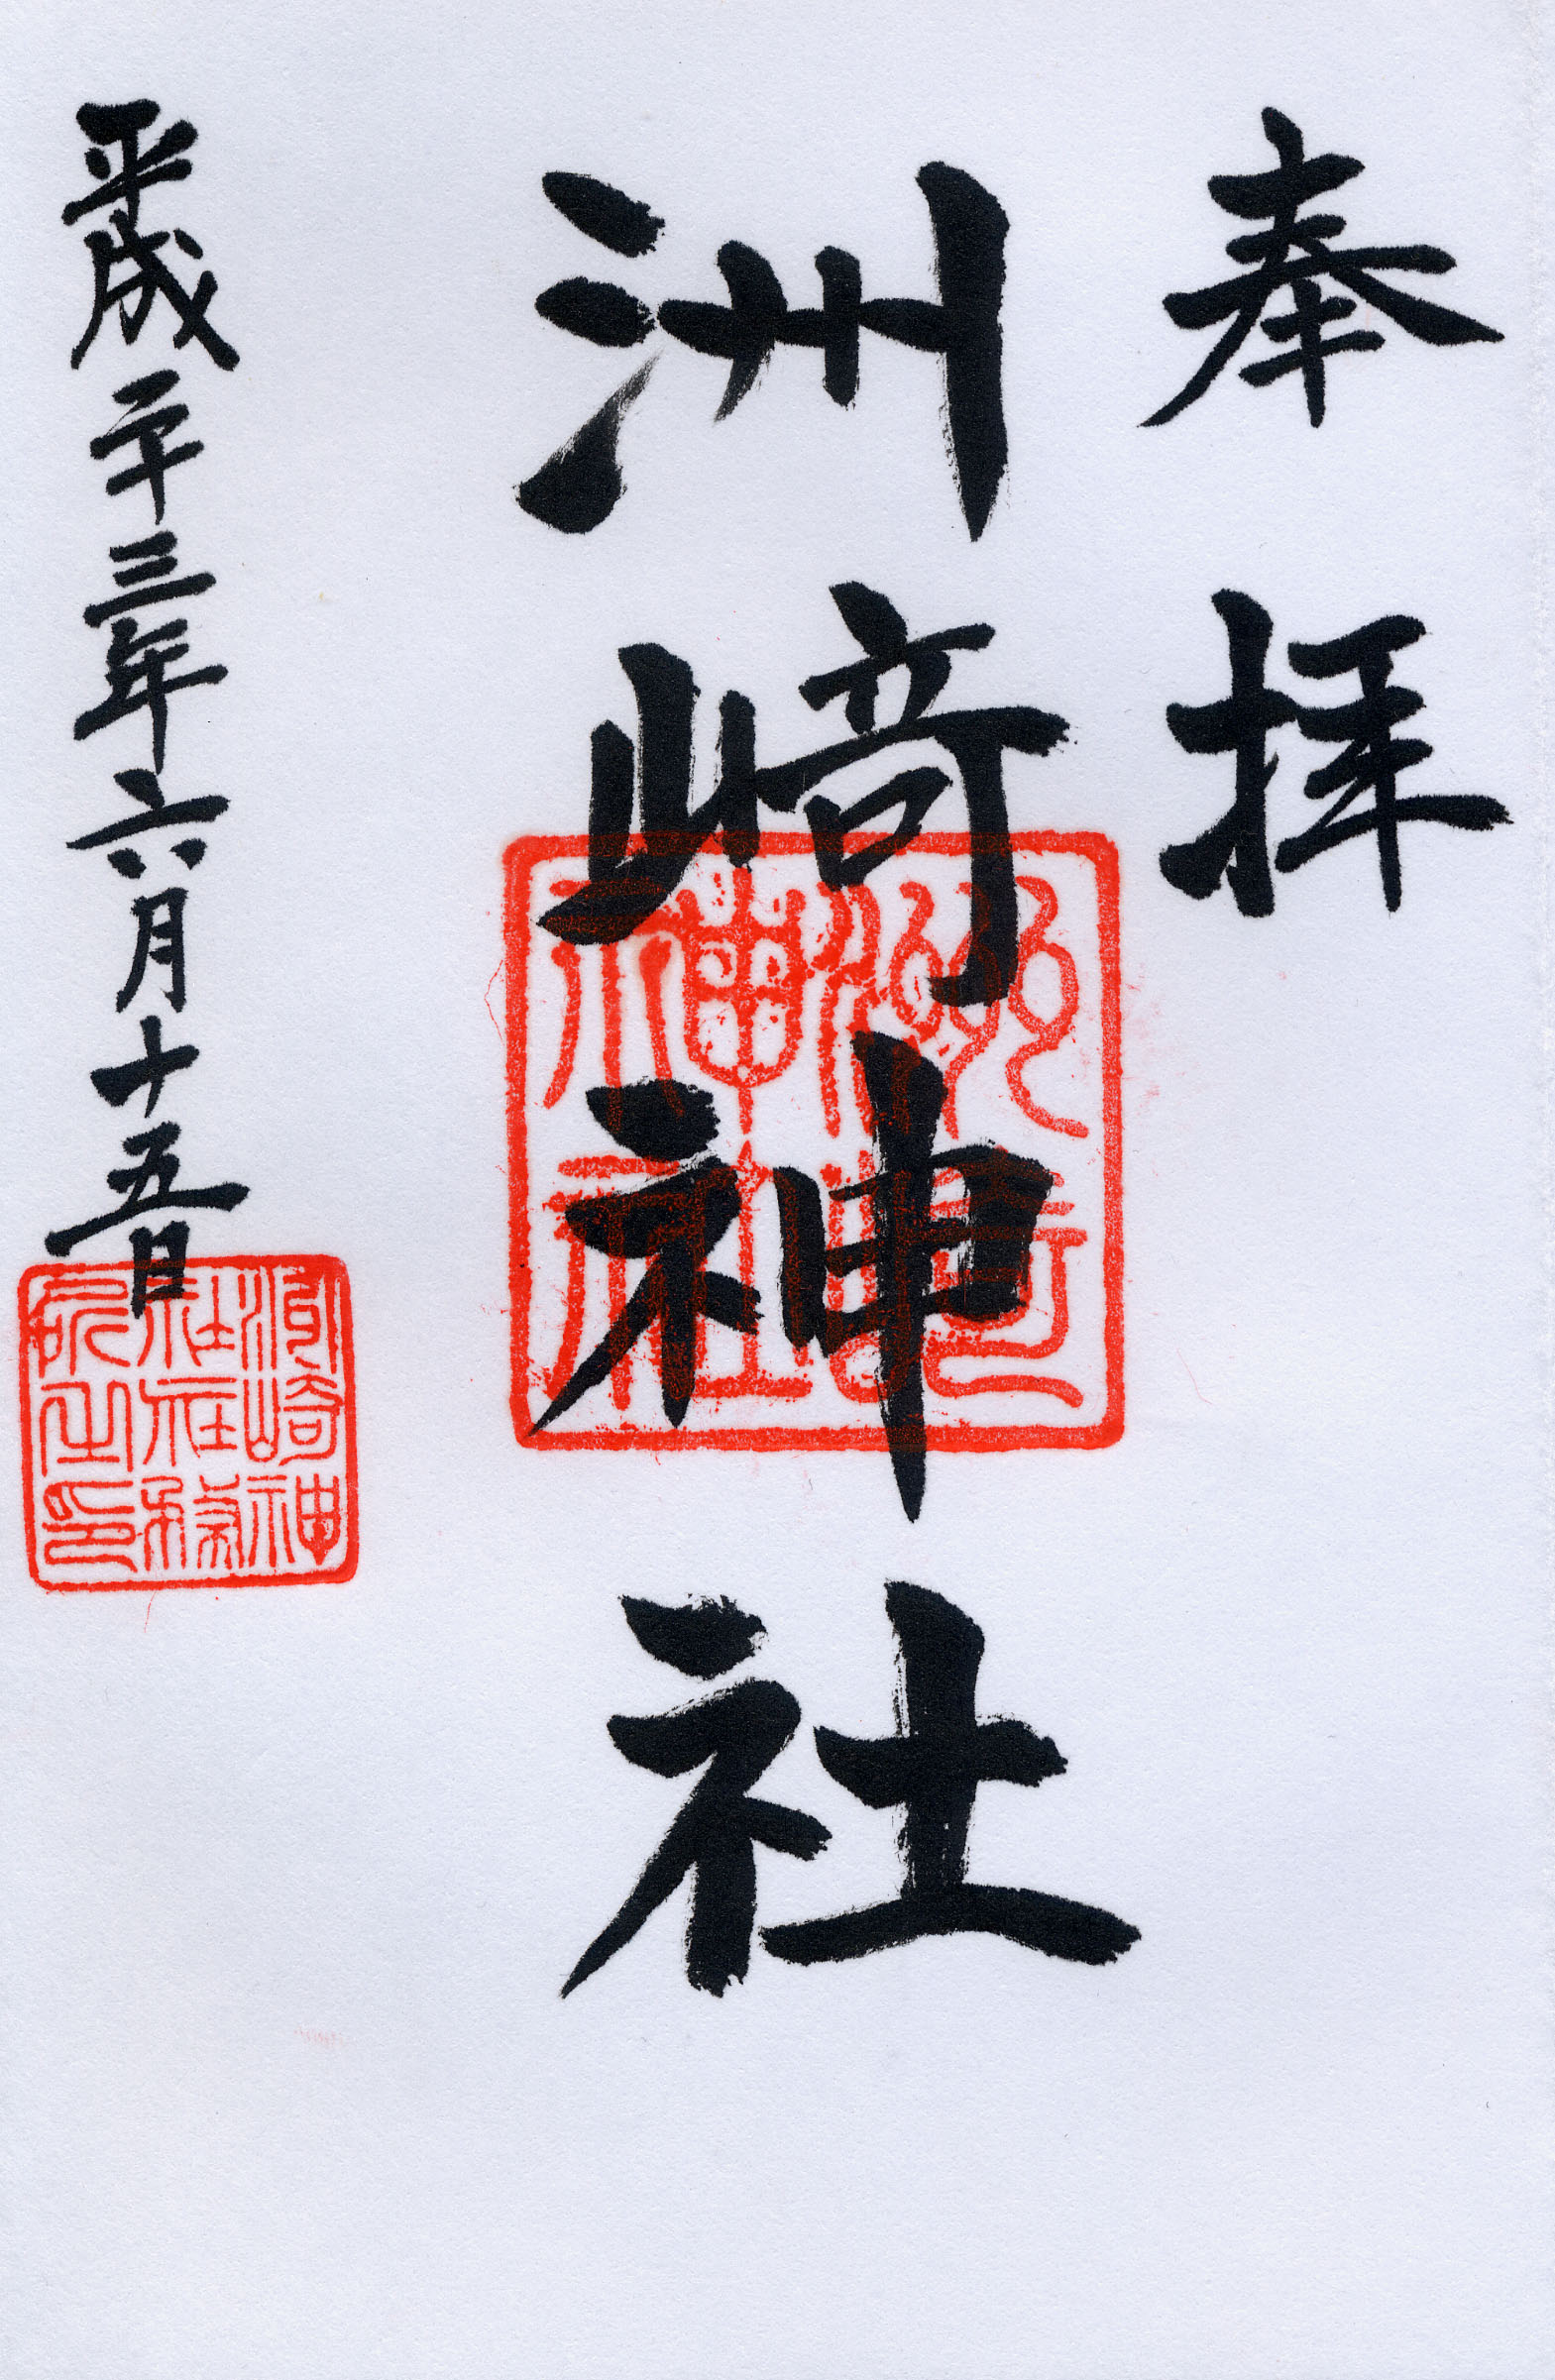 奉拝
洲﨑神社
平成二十三年六月十五日
洲崎
神社
洲崎神
社社務
所之印